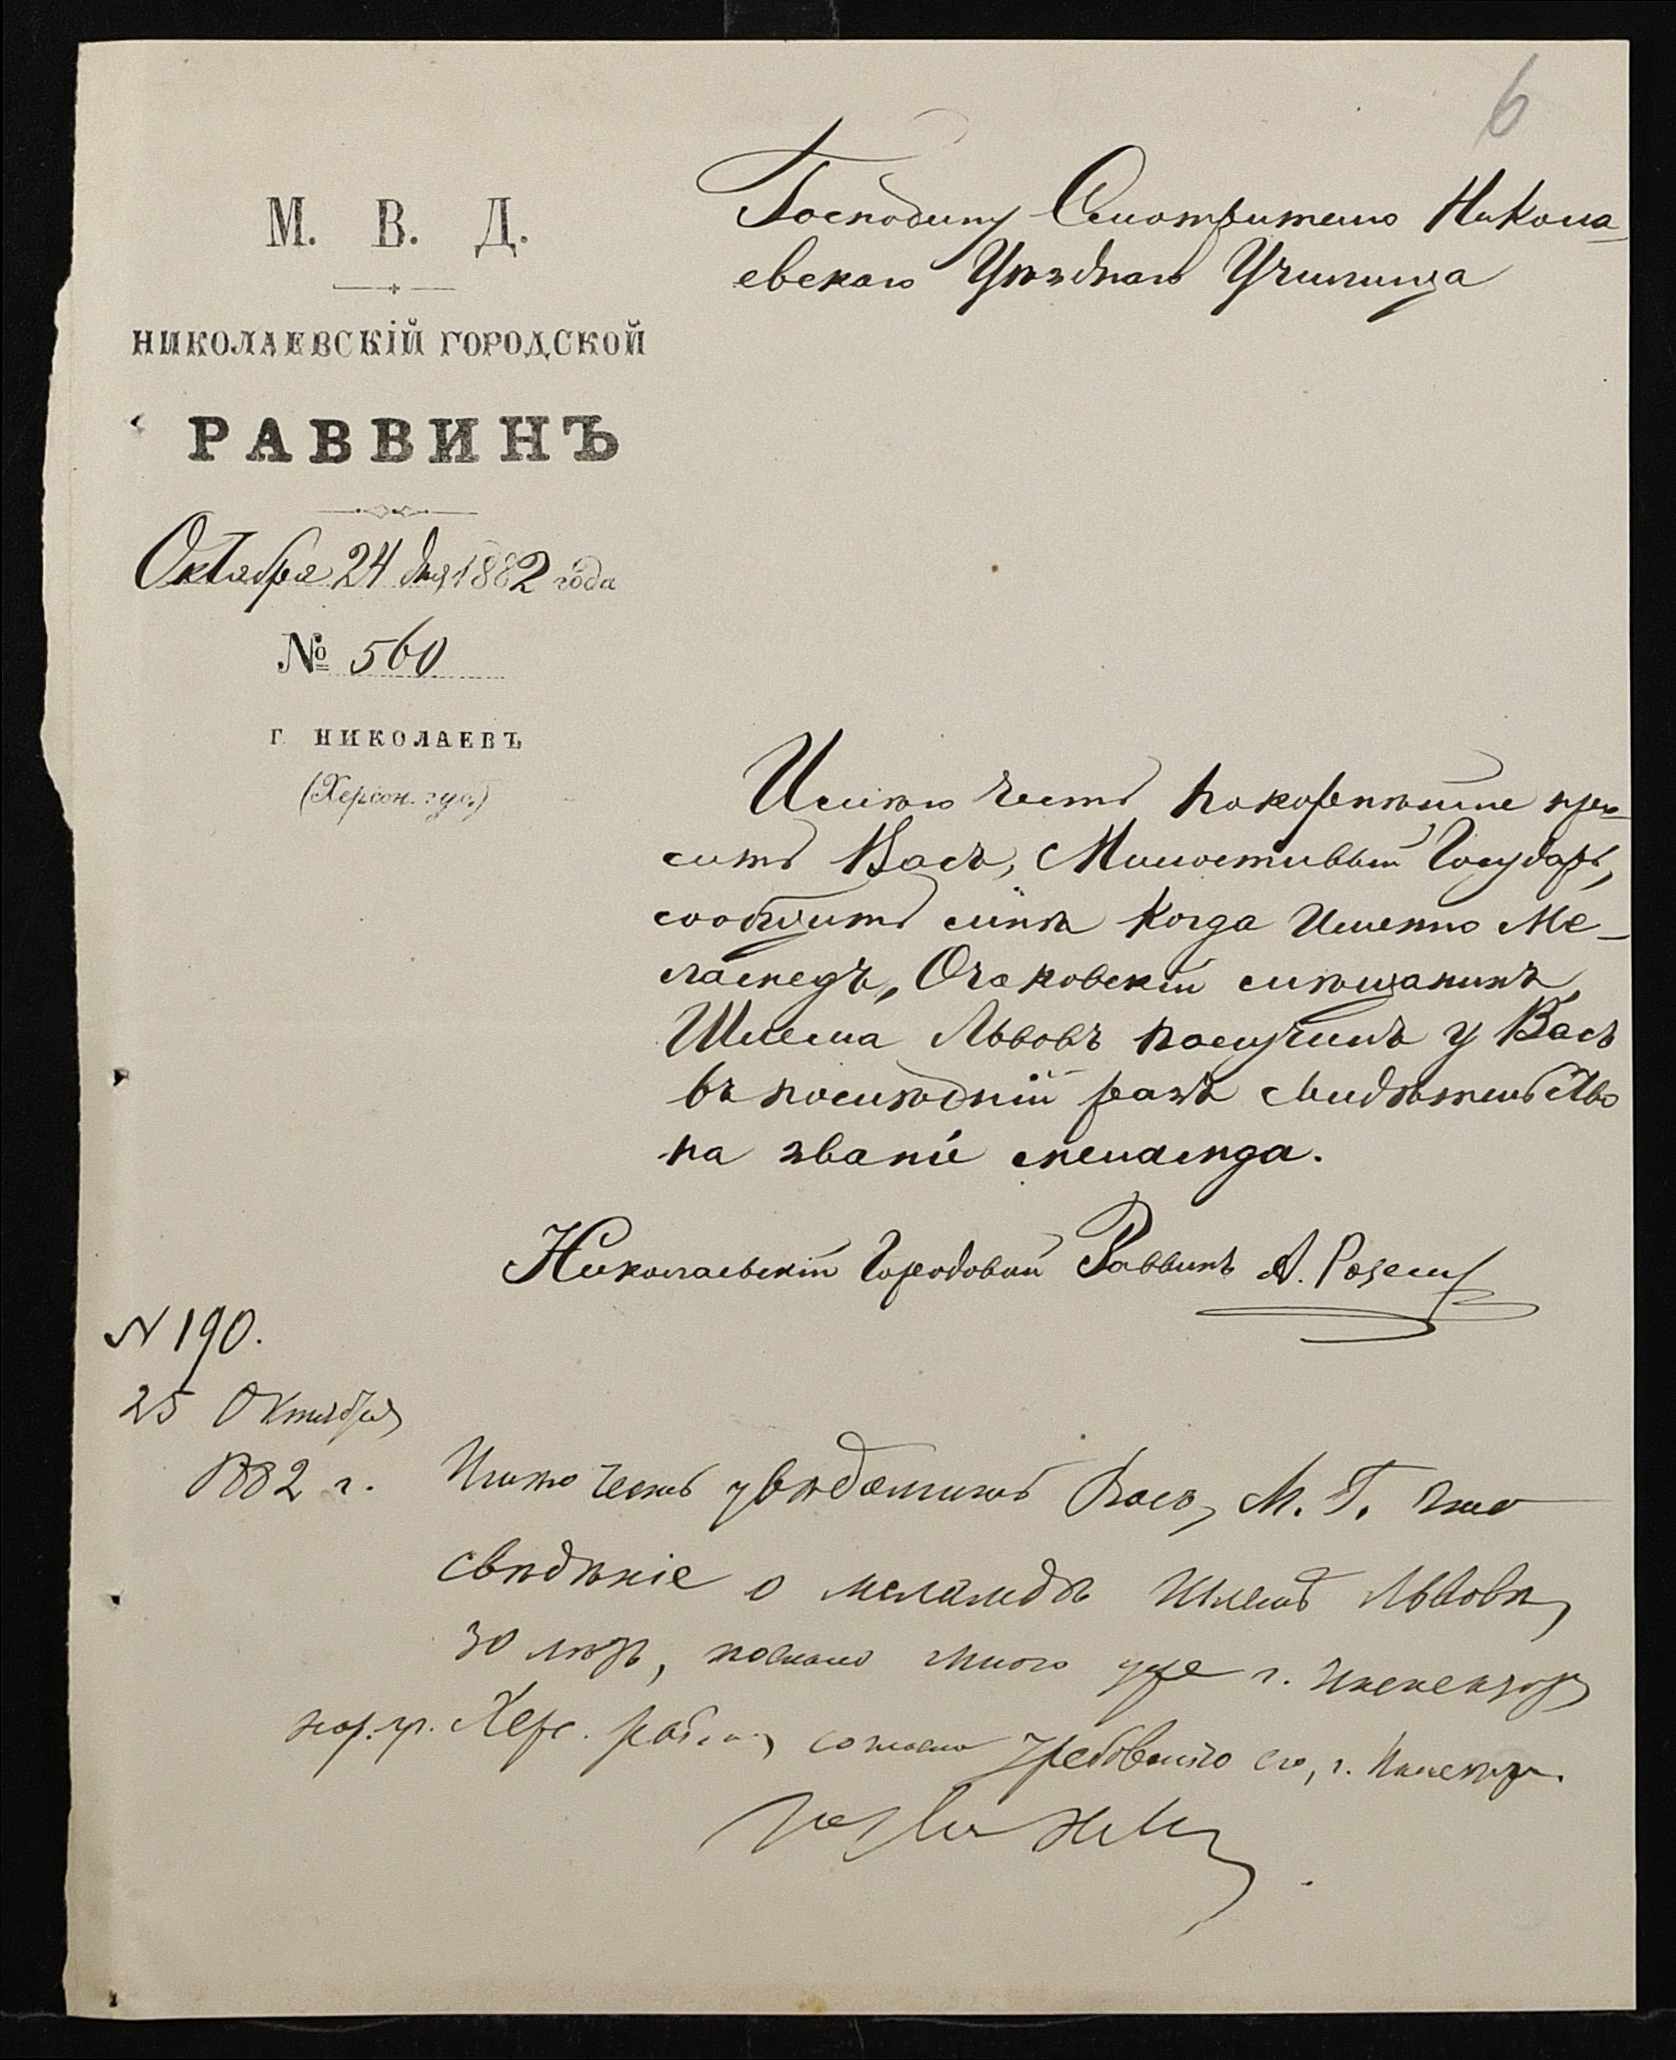 6
М. В. Д.
НИКОЛАЕВСКІЙ ГОРОДСКОЙ
РАВВИНЪ
Октября 24 дня 1882 года
№ 560
Г. НИКОЛАЕВЪ
(Херсон. губ.)
Господину Смотрителю Никола-
евскаго Уѣзднаго Училища
Имѣю честь покорнѣйше про-
сить Васъ, Милостивый Государь,
сообщить мнѣ когда именно Ме-
ламедъ, Очаковскій мѣщанинъ
Шлема Львовъ получилъ у Васъ
въ послѣдній разъ свидѣтельство
на званіе меламда.
Николаевскій Городовой Раввинъ А.
N 190.
25 Октября
1882 г.
Имѣю честь увѣдомить Васъ, М. Г. что
свѣдѣніе о меламдѣ Шлемѣ Львовѣ,
30 лѣтъ, послано мною уже г. Инспектору
нар. уч. Херс. согласно требованію его, г. Инспектора.